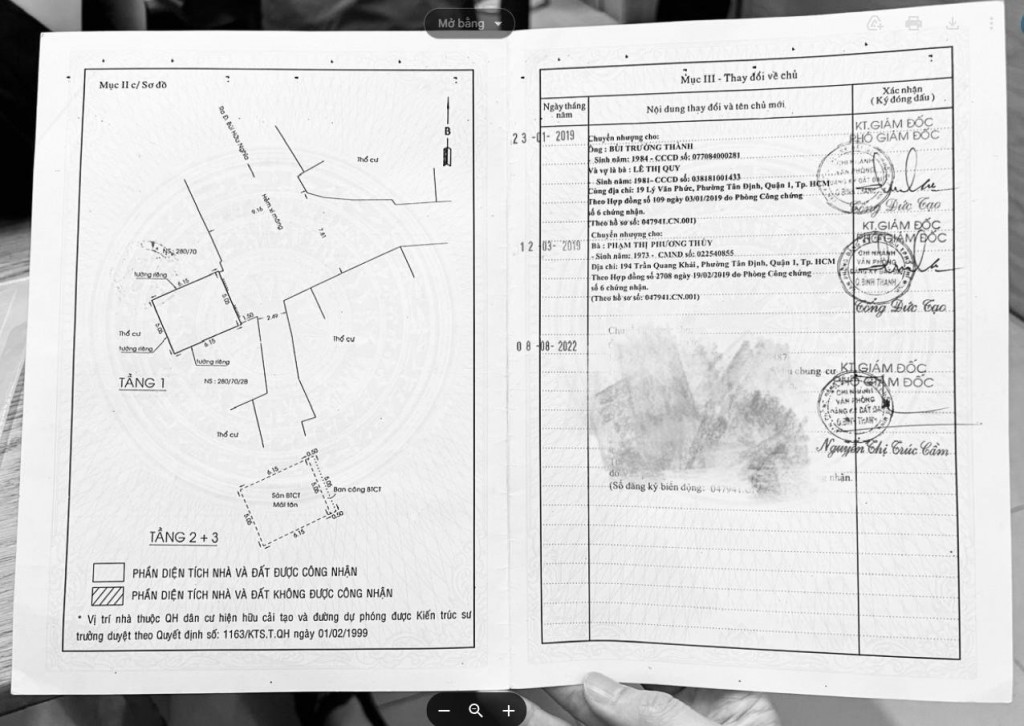 Mở bằng
Mục II c/ Sơ đồ
Ra Đ. BÙI HỮU NGHĨA
Hẻm xi măng
9.16
7.81
Thổ cư
B
NS: 280/70
tường riêng
6.15
5.00
5.00
6.15
1.50
2.49
Thổ cư
tường riêng
tường riêng
Thổ cư
TẦNG 1
NS : 280/70/28
Thổ cư
6.15
0.50
5.00
5.00
5.00
Sàn BTCT
Mái tôn
Ban công BTCT
0.50
6.15
TẦNG 2 + 3
PHẦN DIỆN TÍCH NHÀ VÀ ĐẤT ĐƯỢC CÔNG NHẬN
PHẦN DIỆN TÍCH NHÀ VÀ ĐẤT KHÔNG ĐƯỢC CÔNG NHẬN
* Vị trí nhà thuộc QH dân cư hiện hữu cải tạo và đường dự phóng được Kiến trúc sư
trưởng duyệt theo Quyết định số: 1163/KTS.T.QH ngày 01/02/1999
Mục III - Thay đổi về chủ
Ngày tháng
năm
Nội dung thay đổi và tên chủ mới
Xác nhận
( Ký đóng dấu )
23 -01- 2019
Chuyển nhượng cho:
Ông : BÙI TRƯỜNG THÀNH
- Sinh năm: 1984 - CCCD số: 077084000281
Và vợ là bà : LÊ THỊ QUY
- Sinh năm: 1981- CCCD số: 038181001433
Cùng địa chỉ: 19 Lý Văn Phức, Phường Tân Định, Quận 1, Tp. HCM
Theo Hợp đồng số 109 ngày 03/01/2019 do Phòng Công chứng
số 6 chứng nhận.
(Theo hồ sơ số: 047941.CN.001)
KT.GIÁM ĐỐC
PHÓ GIÁM ĐỐC
CHI NHÁNH
VĂN PHÒNG
ĐĂNG KÝ ĐẤT ĐAI
Q.BÌNH THẠNH
Tống Đức Tạo
12 -03- 2019
Chuyển nhượng cho:
Bà : PHẠM THỊ PHƯƠNG THÚY
- Sinh năm: 1973 - CMND số: 022540855
Địa chỉ: 194 Trần Quang Khải, Phường Tân Định, Quận 1, Tp. HCM
Theo Hợp đồng số 2708 ngày 19/02/2019 do Phòng Công chứng
số 6 chứng nhận.
(Theo hồ sơ số: 047941.CN.001)
KT.GIÁM ĐỐC
PHÓ GIÁM ĐỐC
CHI NHÁNH
VĂN PHÒNG
ĐĂNG KÝ ĐẤT ĐAI
Q.BÌNH THẠNH
Tống Đức Tạo
08 -08- 2022
chung cư
nhận.
(Số đăng ký biến động: 047941.
KT.GIÁM ĐỐC
PHÓ GIÁM ĐỐC
CHI NHÁNH
VĂN PHÒNG
ĐĂNG KÝ ĐẤT ĐAI
Q.BÌNH THẠNH
Nguyễn Thị Trúc Cẩm